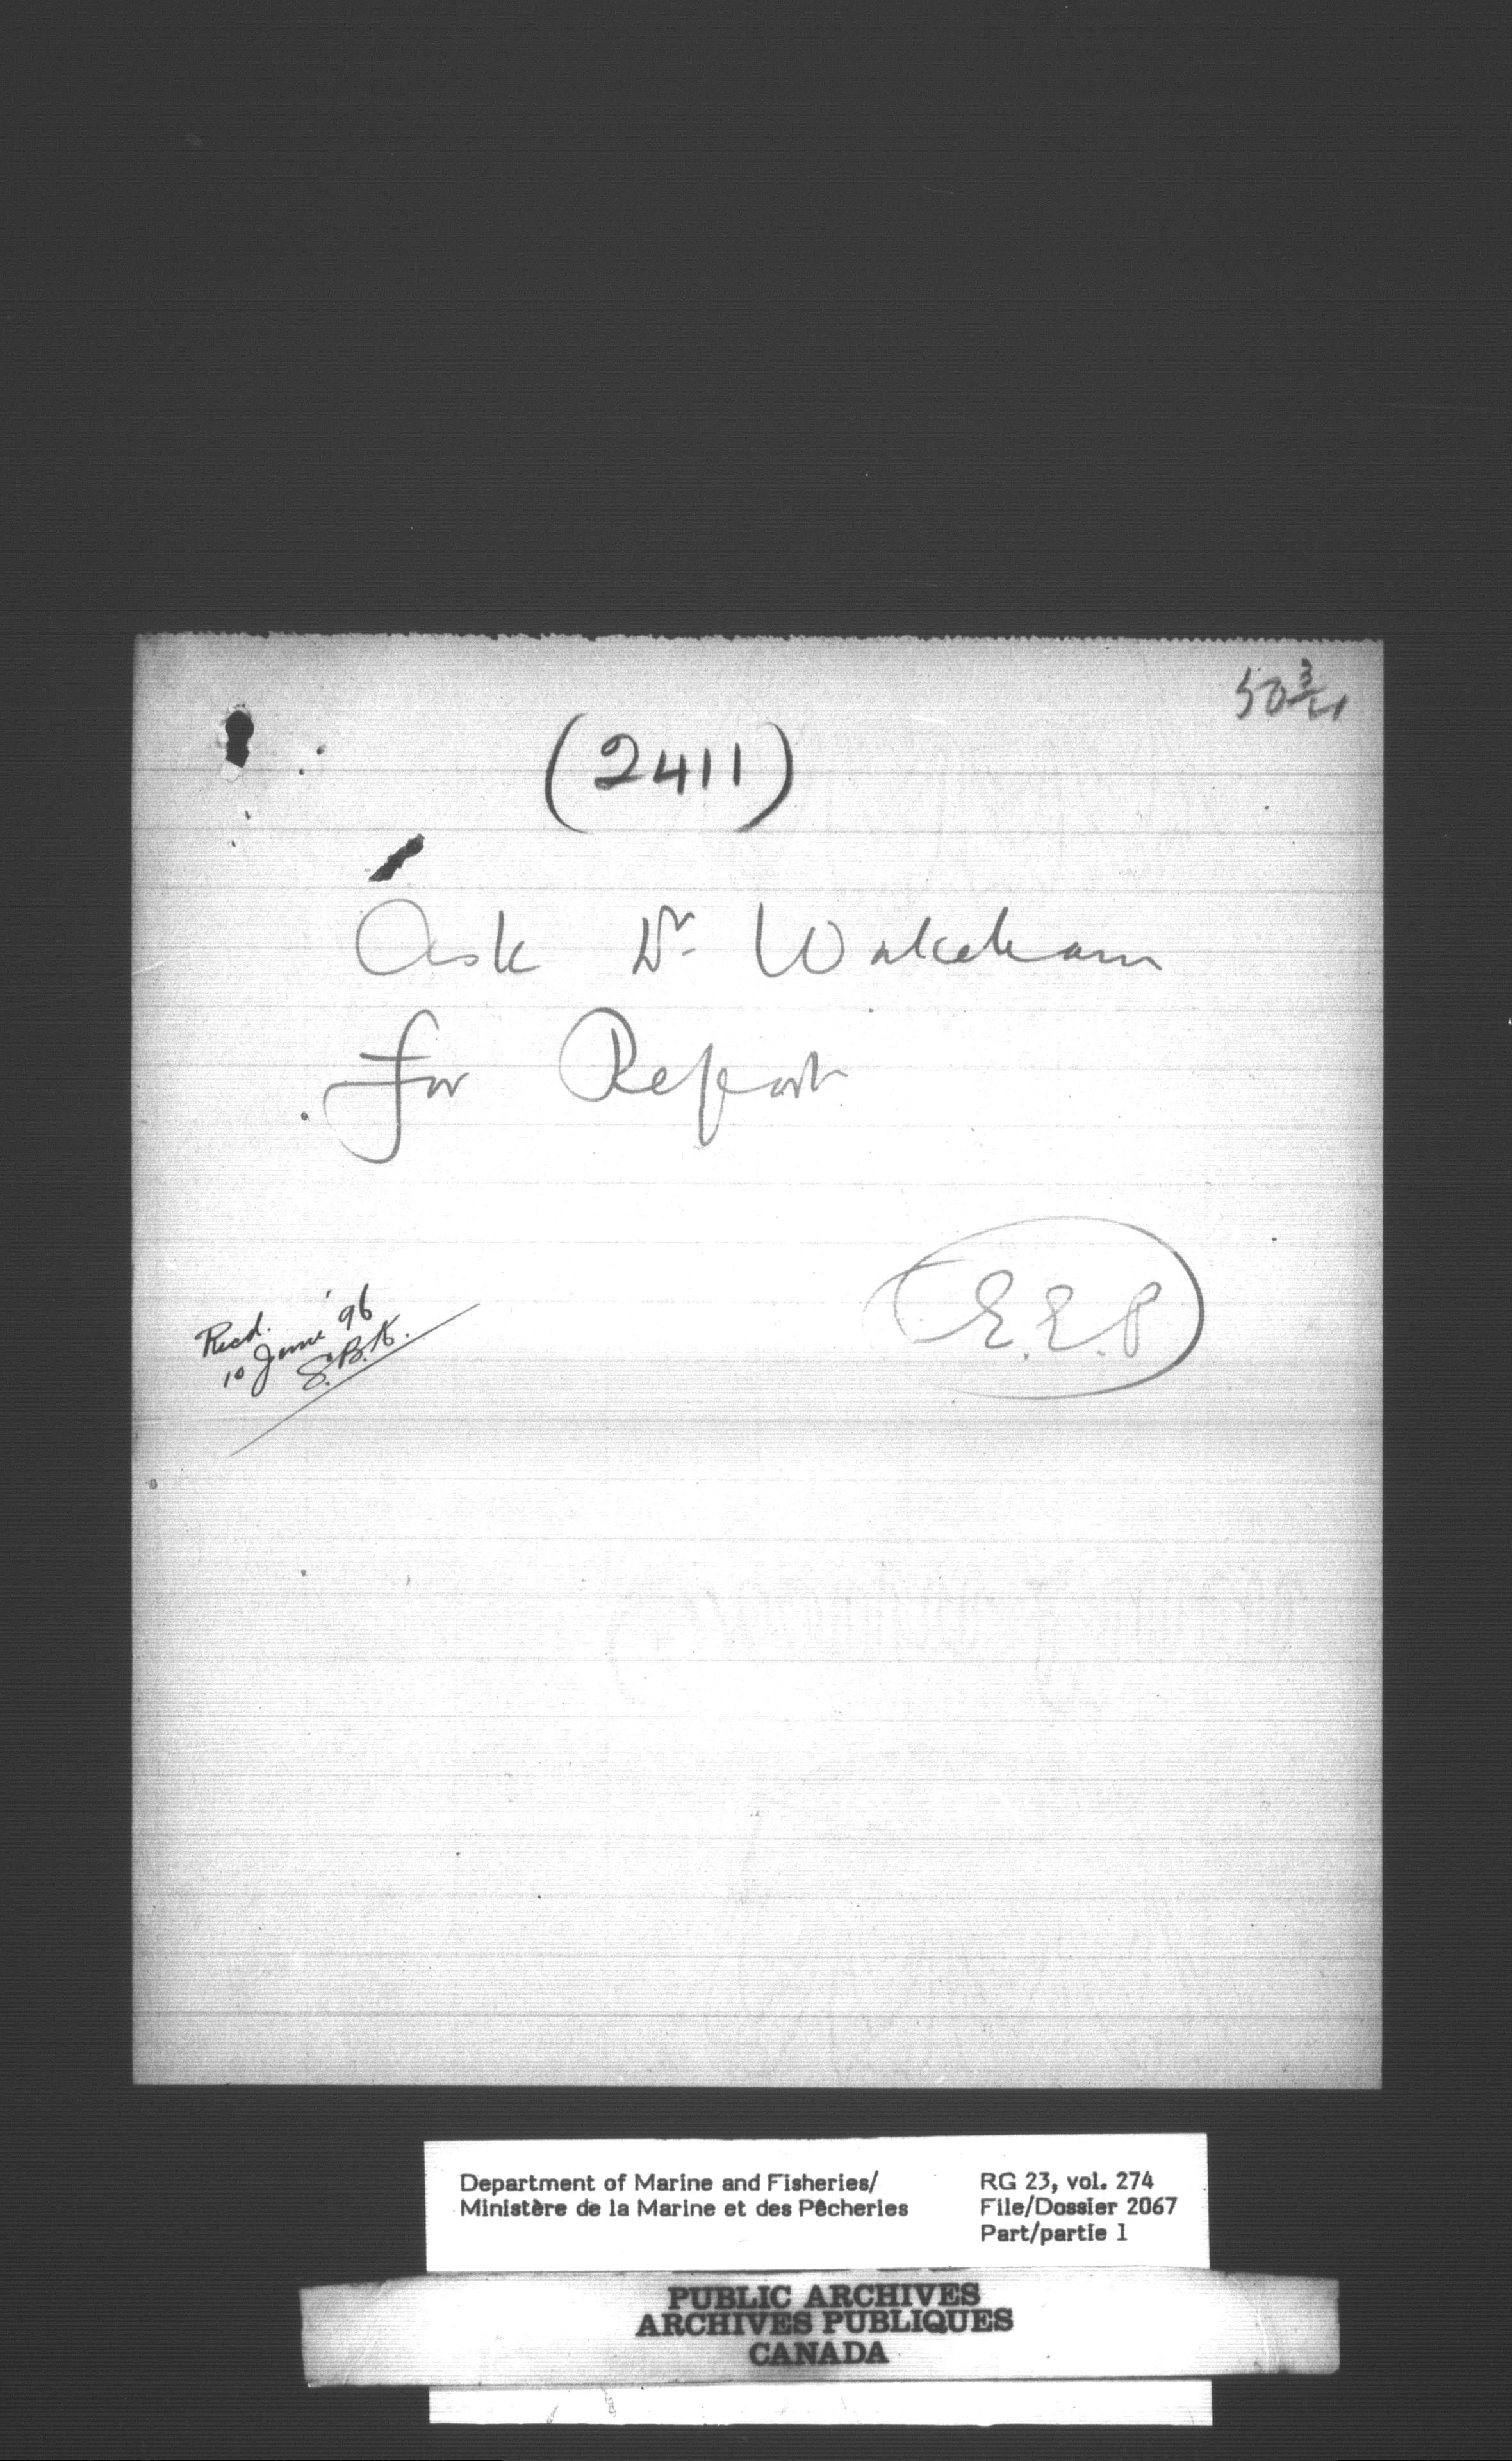 50 3/4
(2411)
Ask Dr Wakeham
for Report
E.E.P
Recd.
10 June '96
S.B.K.
Department of Marine and Fisheries/ RG 23, vol. 274
Ministère de la Marine et des Pêcheries File/Dossier 2067
Part/partie 1
PUBLIC ARCHIVES
ARCHIVES PUBLIQUES
CANADA